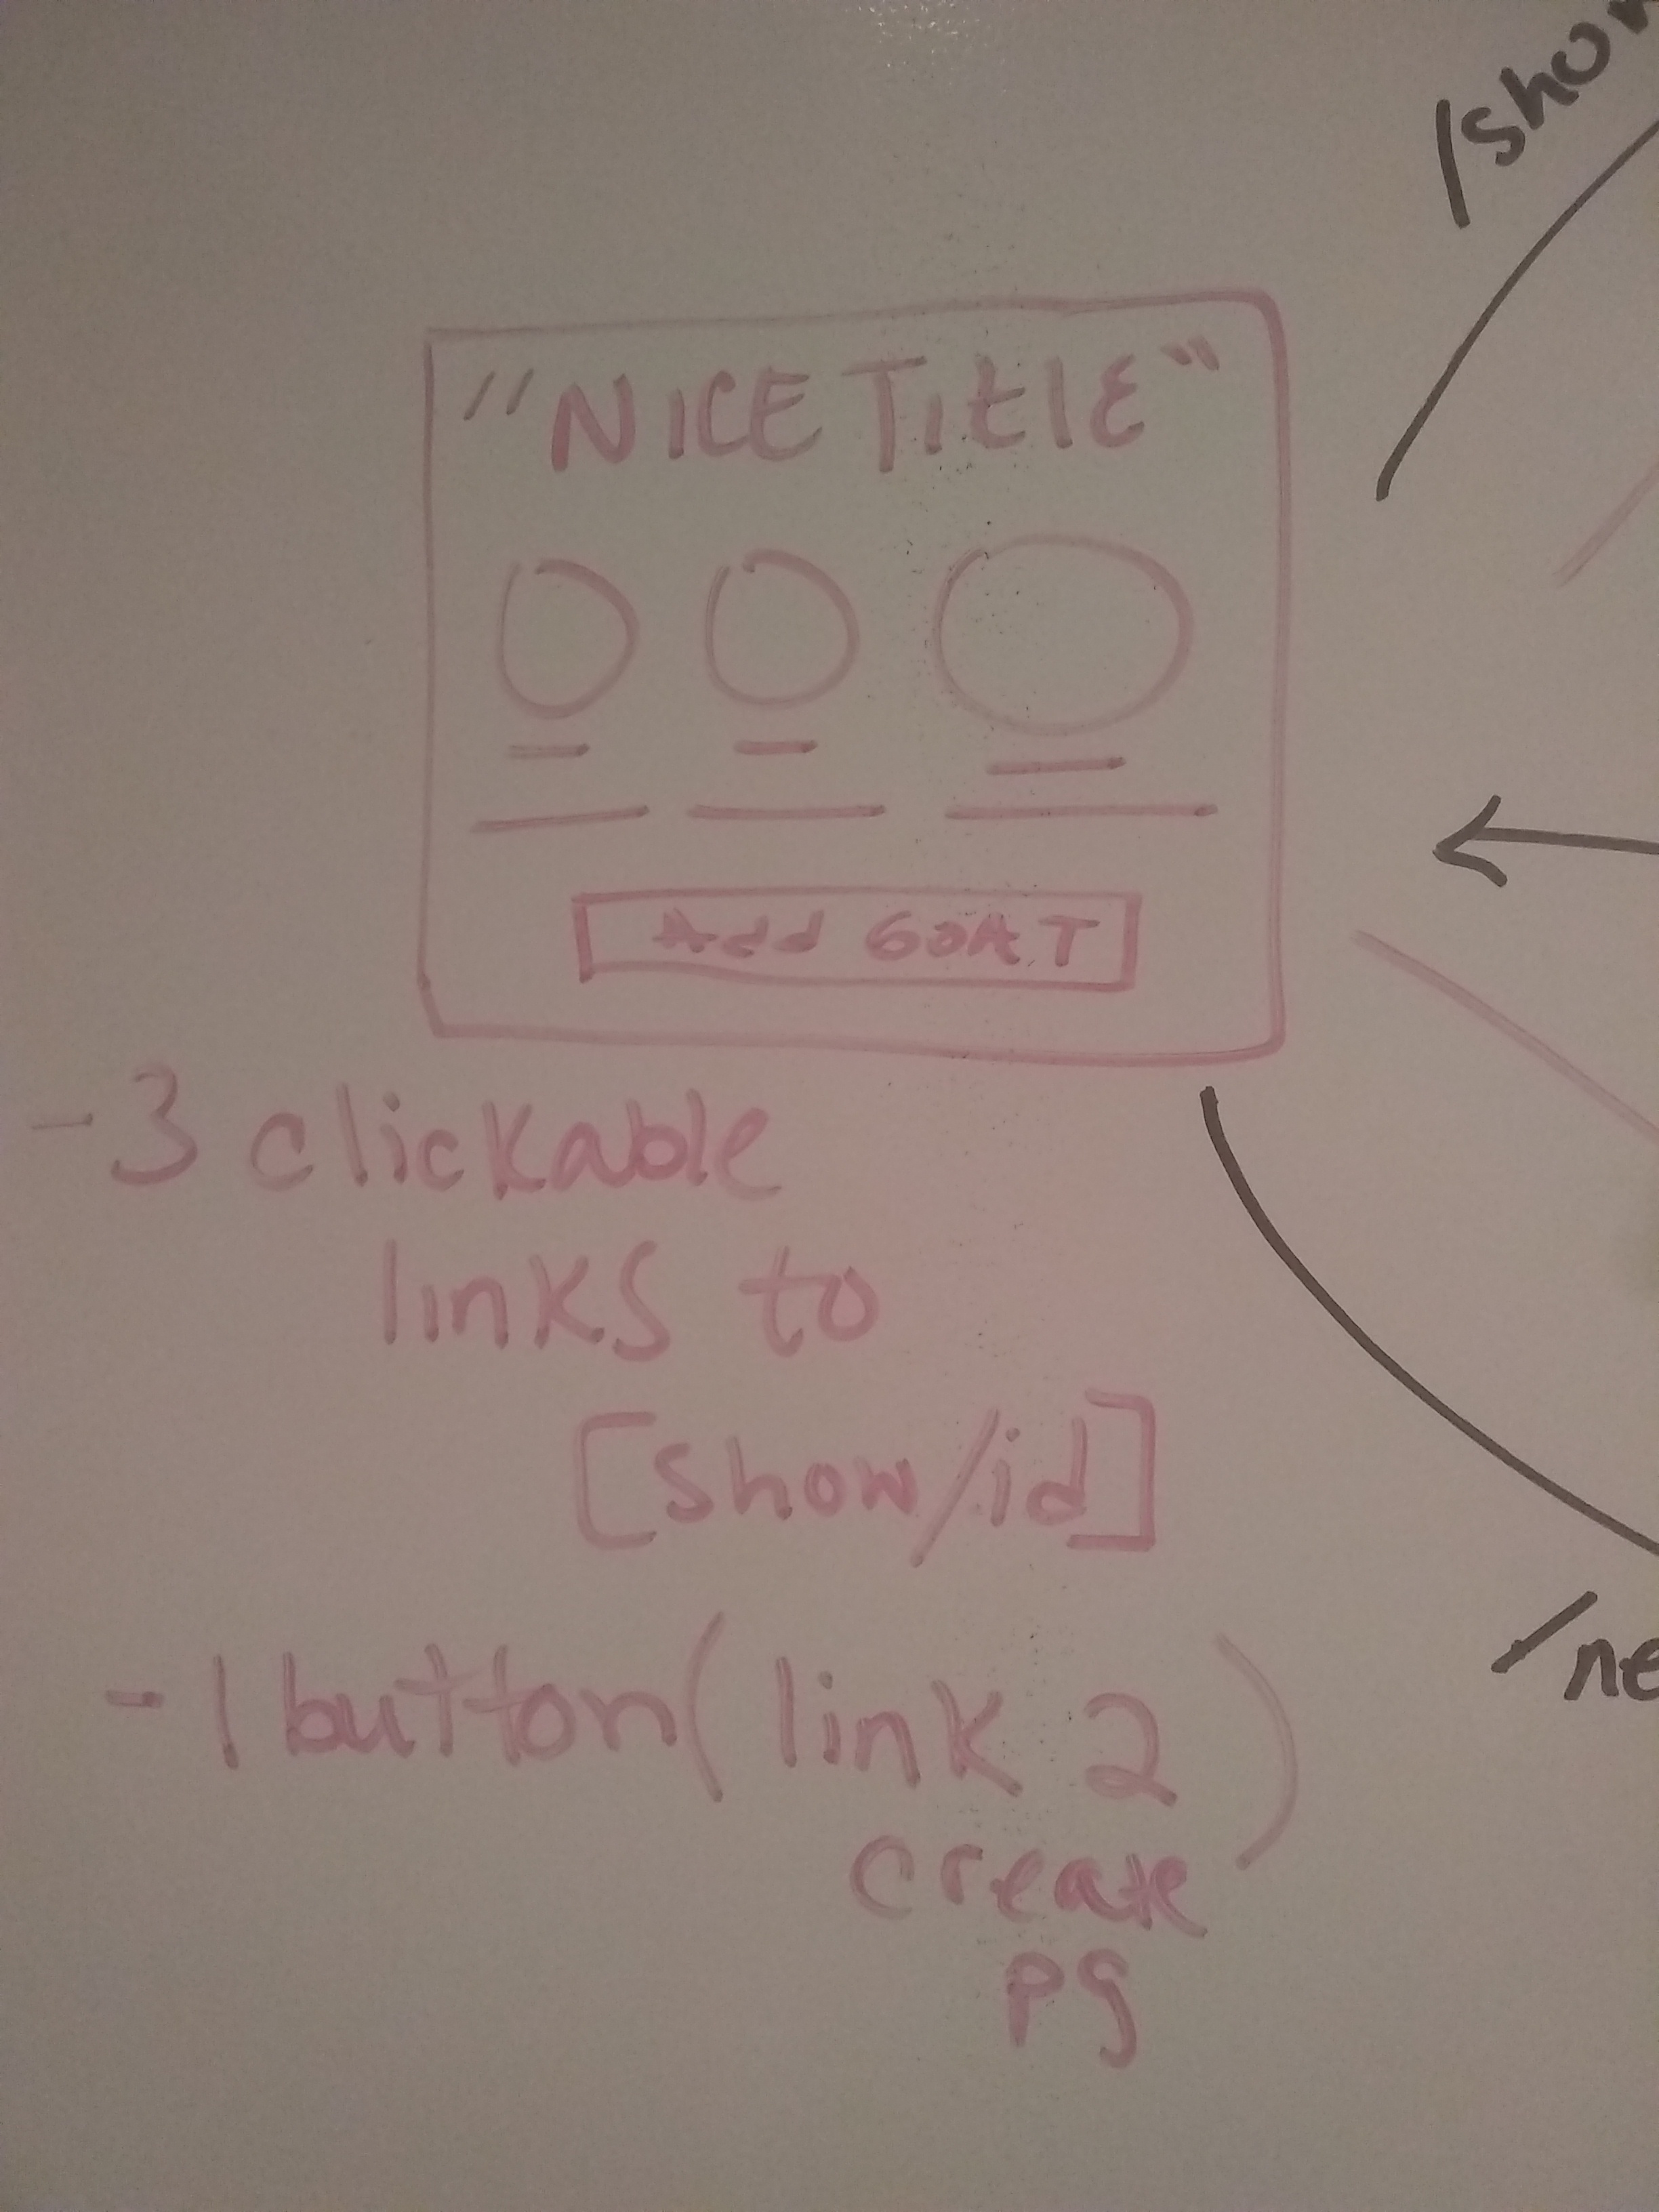 /sho
"NICE TitlE"
Add GOAT
-3 clickable
links to
[show/id]
-1 button(link 2)
create
pg
/ne